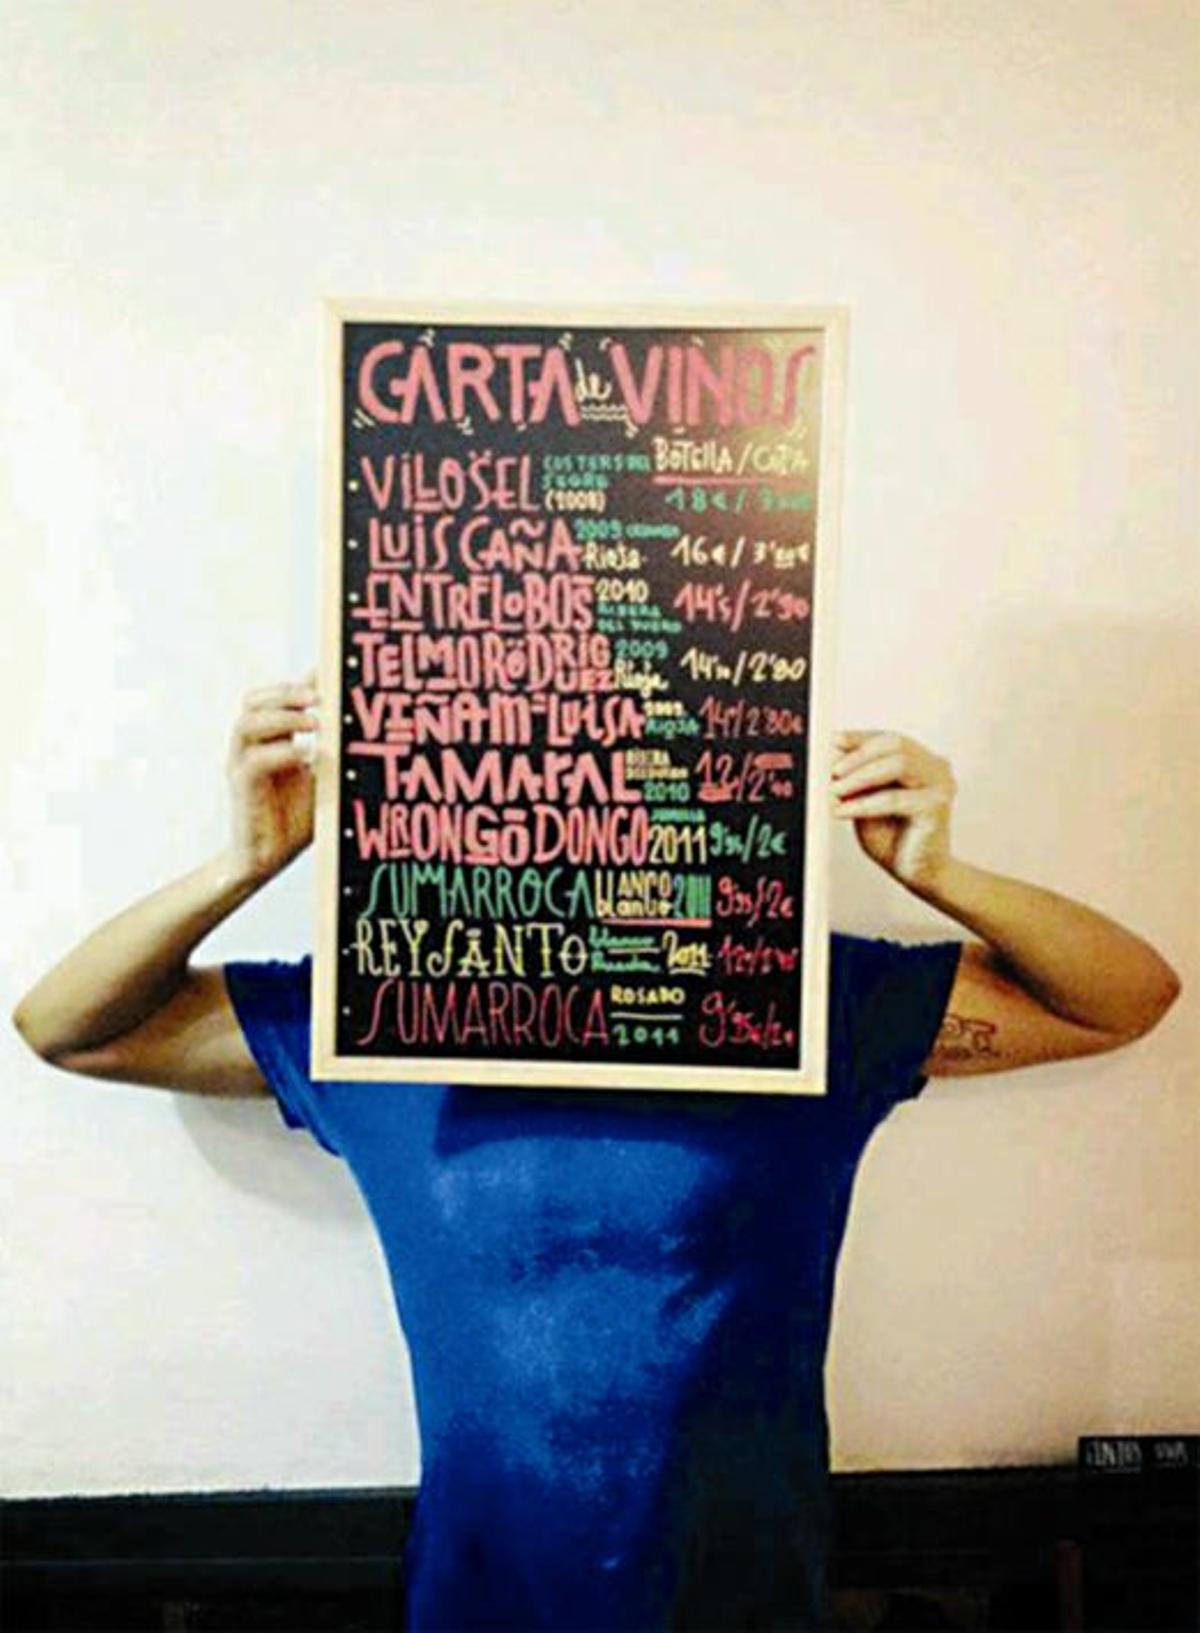 CARTA de VINOS
BOTELLA / COPA
VILOSEL COSTERS DEL SEGRE (2008) 18€ /
LUIS CAÑA 2009 CRIANZA Rioja 16€ / 3'
ENTRELOBOS 2010 RIBERA DEL DUERO 14'5 / 2'90
TELMO RODRIGUEZ 2009 Rioja 14' / 2'80
VIÑA Mª LUISA 2009 RIOJA 14 / 2'80€
TAMARAL RIBERA DEL DUERO 2010 12 / 2'
WRONGO DONGO JUMILLA 2011 9'95 / 2€
SUMARROCA bLANCO blanco 2011 9'95 / 2€
REY SANTO blanco Rueda 2011
SUMARROCA ROSADO 2011 9'95€ / 2€